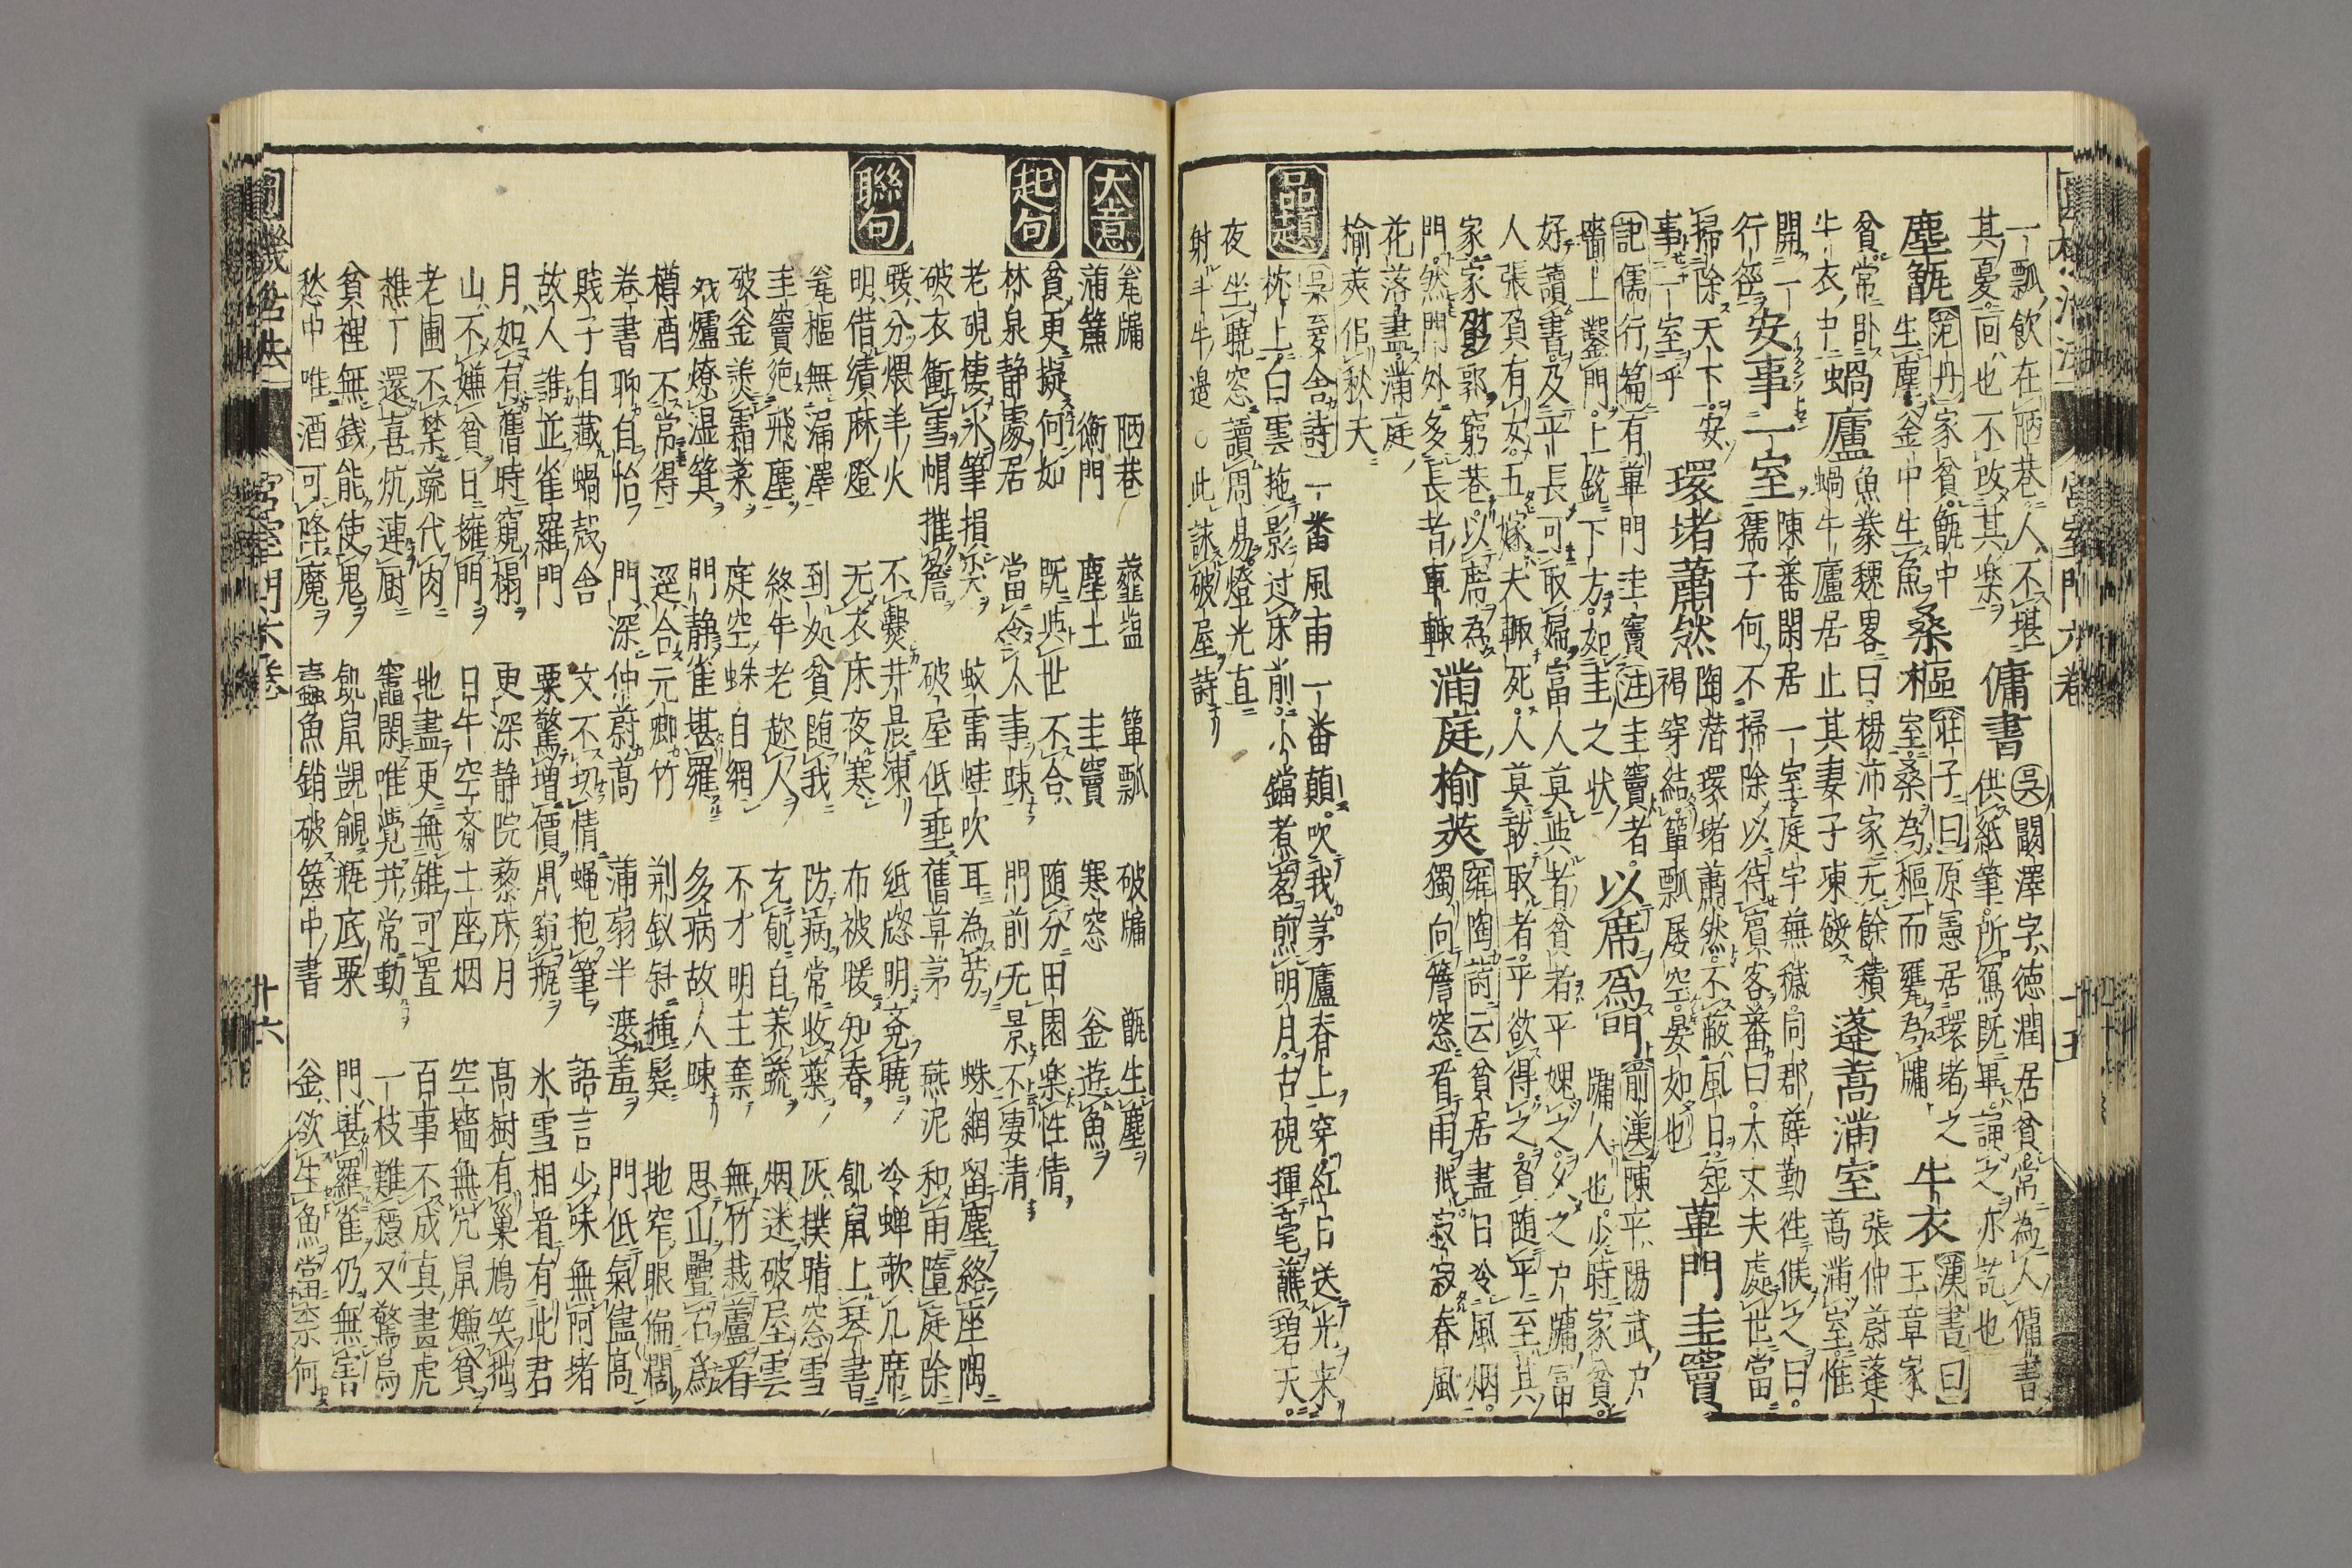 一瓢飲在陋巷人不堪
其憂回也不改其楽
傭書
呉闞澤字徳潤居貧常為人傭書
供紙筆所寫既畢誦之亦荒也
塵甑
范丹家貧甑中
生塵釜中生魚
桑樞
荘子曰原憲居環堵之
室桑為樞而甕為牖
牛衣
漢書曰
王章家
貧常臥
牛衣中
蝸廬
魚豢魏畧曰楊沛家无餘積
蝸牛廬居止其妻子凍餒
蓬蒿満室
張仲蔚蓬
蒿満室惟
開一
行徑
安事一室
陳蕃閑居一室庭宇無穢同郡薛勤往候之曰
孺子何不掃除以待賓客蕃曰大丈夫處世當
掃除天下安
事一室乎
環堵蕭然
陶潜環堵蕭然不蔽風日短
褐穿結簞瓢屡空晏如也
蓽門圭竇
記儒行篇有蓽門圭竇注圭竇者
墻上鑿門上鋭下方如圭之状
以席爲門
前漢陳平陽武戸
牖人也少時家貧
好讀書及平長可取婦富人莫與者貧者平媿之久之戸牖富
人張負有女五嫁夫輙死人莫敢取者平欲得之負随平至其
家家負郭窮巷以席為
門然門外多長者車轍
満庭榆莢
雍陶詩云貧居盡日冷風烟
獨向簷窓看雨眠寂寂春風
花落盡満庭
榆莢佀秋天
品題
呉菱舍詩一番風雨一番顛吹我茅廬春上穿紅日送光来
枕上白雲拖影过床前小鐺煮茗煎明月古硯揮毫蘸碧天
夜坐暁窓讀周易燈光直
射斗牛邊○此詠破屋詩
大意
瓮牖　陋巷　虀塩　簞瓢　破牖　甑生塵
蒲簾　衡門　塵土　圭竇　寒窓　釜遊魚
起句
貧更擬何如　既與世不合　随分田園楽性情
林泉静處居　當令人事疎　門前无景不凄清
聯句
老硯棲氷筆損尖　蚊雷蛙吹耳為労　蛛網留塵絡座隅
破衣衝雪帽摧簷　破屋低垂舊草茅　燕泥和雨墮庭除
暖分煨羊火　不爨井晨凍　紙牕明兖暁　冷蝉歌几席
明借績麻燈　无衣床夜寒　布被暖知春　飢鼠上琴書
瓮樞無漏澤　到処貧随我　防病常收薬　灰撲晴窓雪
圭竇絶飛塵　終年老趂人　充飢自养蔬　烟迷破屋雲
破釜羮霜菜　庭空蛛自網　不才明主棄　無竹栽蘆看
残爐燎湿箕　門静雀堪羅　多病故人疎　思山疊石爲
樽酒不常得　逕合元卿竹　荊釵斜插髮　地窄眼偏濶
巻書聊自怡　門深仲蔚蒿　蒲扇半遮羞　門低氣儘高
賎子自藏蝸殻舎　文不切情蝿抱筆　語言少味無阿堵
故人誰並雀羅門　粟驚增價鼡窺瓶　氷雪相看有此君
月如有舊時窺榻　更深静院藜床月　高樹有巢鳩笑拙
山不嫌貧日擁門　日午空斎土座烟　空墻無穴鼠嫌貧
老圃不禁蔬代肉　地盡更無錐可置　百事不成真畫虎
樵丁還喜炕連厨　竈閑唯覺井常動　一枝難穏又驚烏
貧裡無銭能使鬼　飢鼠覬覦瓶底粟　門堪羅雀仍無害
愁中唯酒可降魔　蠧魚銷破篋中書　釜欲生魚當奈何
宮室門六巻　十五
宮室門六巻　廿六